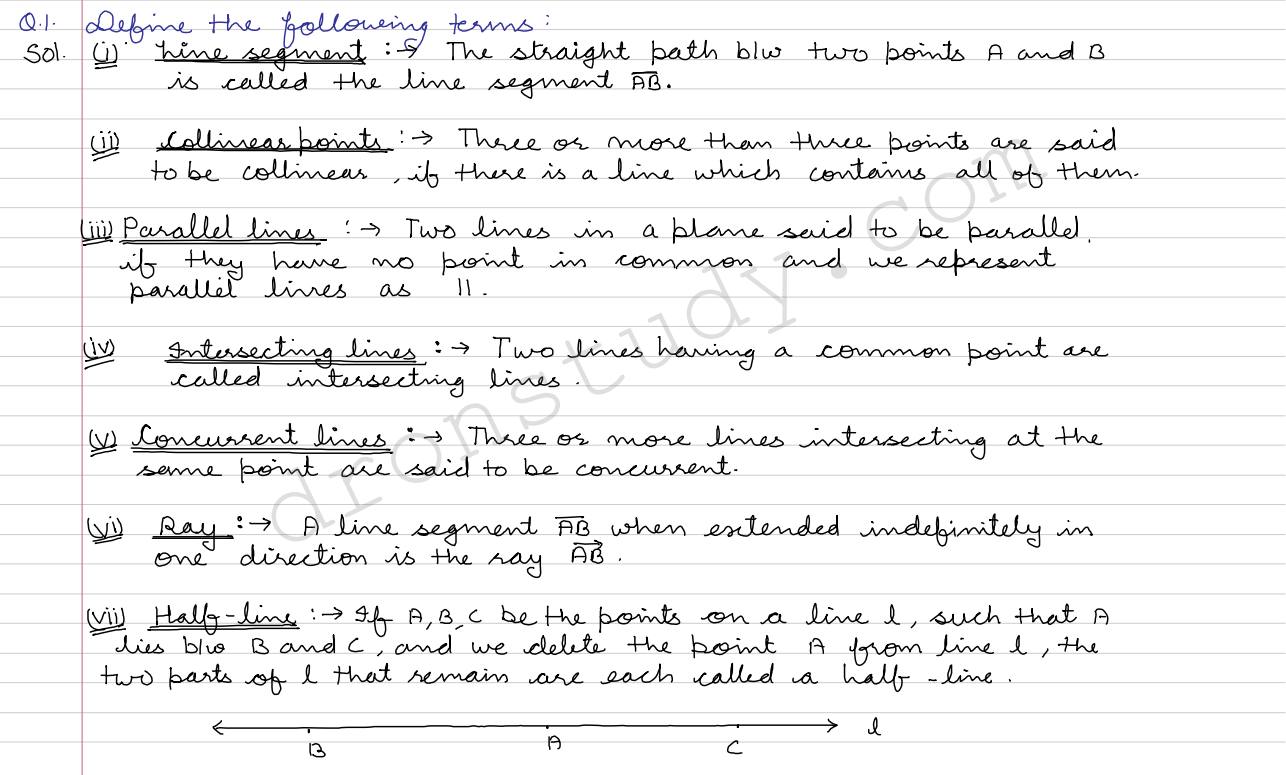 Q.1. Define the following terms:
Sol. (i) Line segment :→ The straight path b/w two points A and B
is called the line segment A̅B̅.
(ii) Collinear points :→ Three or more than three points are said
to be collinear, if there is a line which contains all of them.
(iii) Parallel lines :→ Two lines in a plane said to be parallel,
if they have no point in common and we represent
parallel lines as ||.
(iv) Intersecting lines :→ Two lines having a common point are
called intersecting lines.
(v) Concurrent lines :→ Three or more lines intersecting at the
same point are said to be concurrent.
(vi) Ray :→ A line segment A̅B̅ when extended indefinitely in
one direction is the ray AB⃗.
(vii) Half-line :→ If A, B, C be the points on a line l, such that A
lies b/w B and C, and we delete the point A from line l, the
two parts of l that remain are each called a half-line.
l
B A C
dronstudy.com